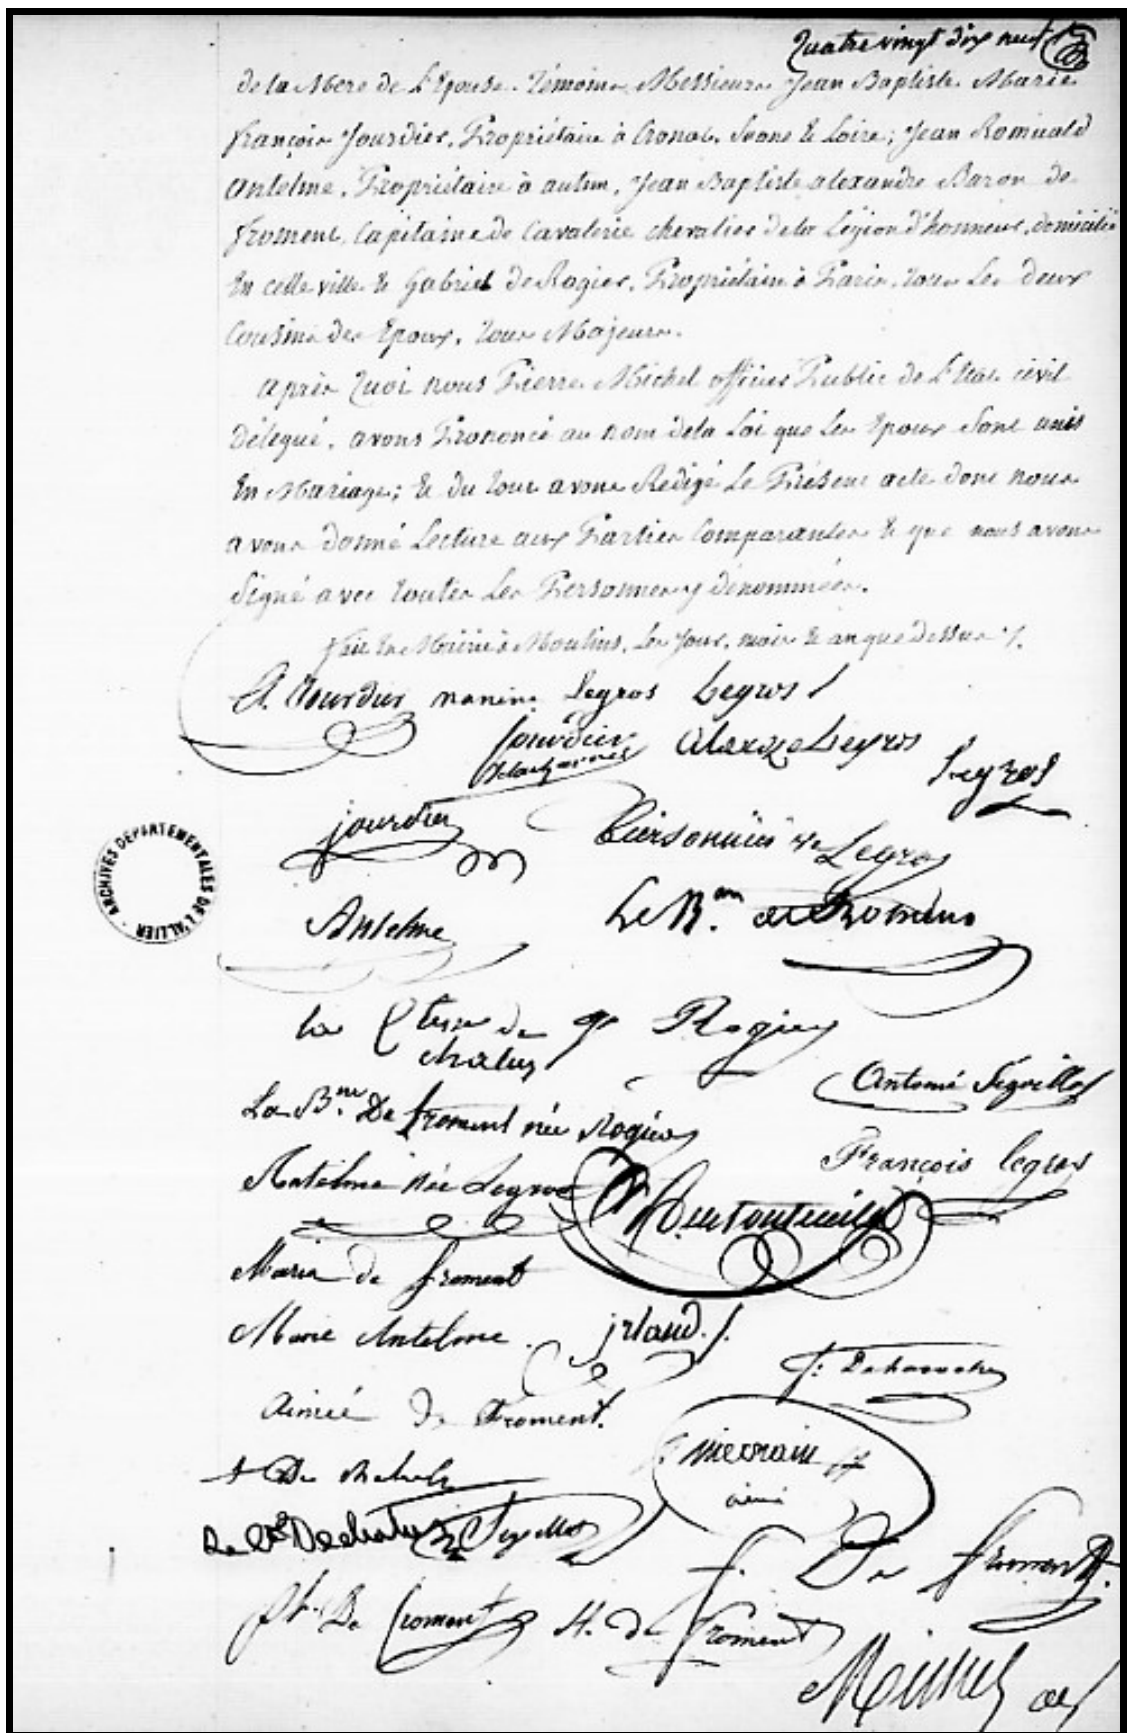 Quatre vingt dix neuf
de la Mere de L'Epouse. Témoins Messieurs Jean Baptiste Marie
françois Jourdier, Propriétaire à Cronat, Saone & Loire; Jean Romuald
Antelme, Propriétaire à autun, Jean Baptiste alexandre Baron de
froment, Capitaine de Cavalerie chevalier dela Légion d'honneur, domicilié
En cette ville & Gabriel de Rogier, Propriétaire à Paris, tous Les deux
Cousins des Epoux, tous Majeurs.
après quoi nous Pierre Michel officier Public de L'Etat civil
Délegué, avons Prononcé au nom dela Loi que Les Epoux Sont unis
En Mariage; & du tout avons Rédigé Le Présent acte dont nous
avons donné Lecture aux Parties Comparantes & que nous avons
Signé avec toutes Les Personnes y dénommées.
fait En Mairie à Moulins, Les Jour, mois & an que dessus ./.
A. Jourdier nanine Legros Legros
Jourdier Legros
Legros
jourdier Legros
Antelme Le Bon de Froment
La Ctesse de G Rogier
chalus
Antoine
La Bne De froment née Rogier
François legros
Antelme née Legros
Maria de froment
Marie Antelme jrland./.
Aimée De Froment.
mécrain
ainé
De Chalus
f. De froment
De froment H. de froment